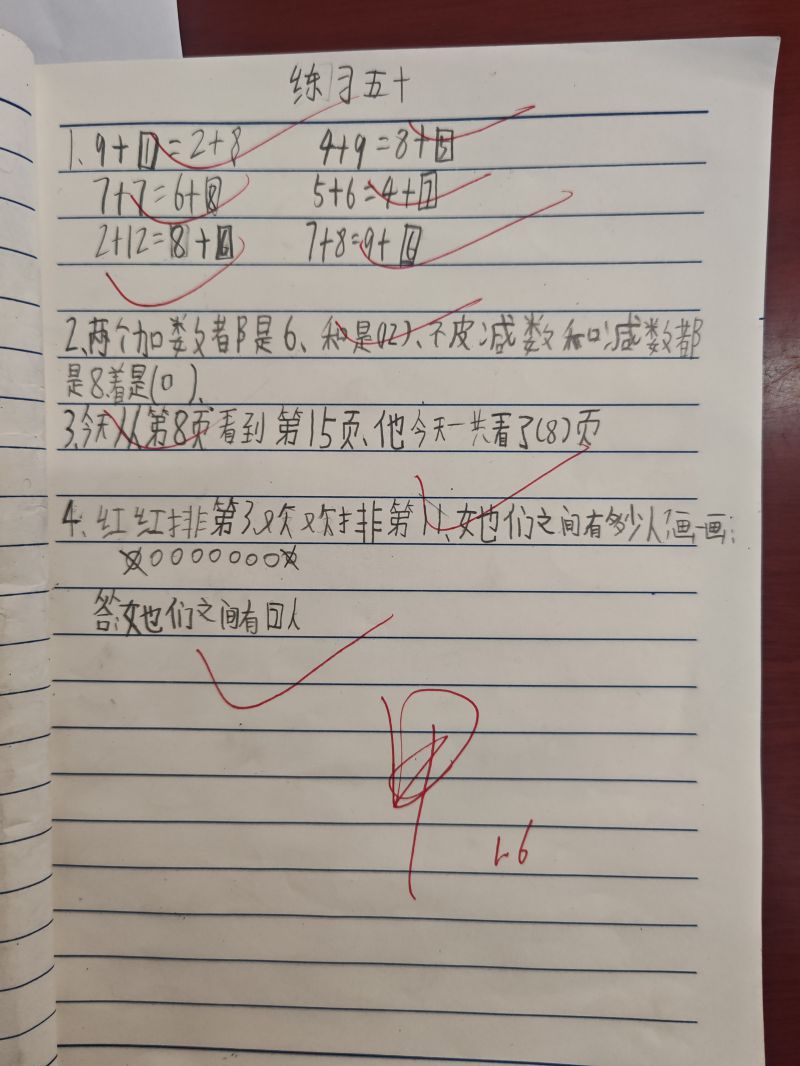 练习五十
1、9+1=2+8 4+9=8+5
7+7=6+8 5+6=4+7
2+12=8+6 7+8=9+6
2、两个加数都是6、和是(12)、不皮减数和减数都
是8、差是(0)、
3、今天从第8页看到第15页、他今天一共看了(8)页
4、红红排第3、欢欢排第11、她们之间有多少人?画一画:
XOOOOOOOX
答:她们之间有7人
甲
1.6